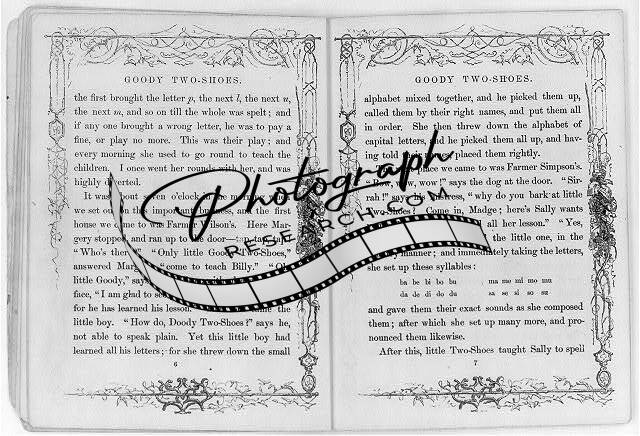 GOODY TWO-SHOES.
the first brought the letter p, the next l, the next u,
the next m, and so on till the whole was spelt; and
if any one brought a wrong letter, he was to pay a
fine, or play no more. This was their play; and
every morning she used to go round to teach the
children. I once went her rounds with her, and was
highly diverted.
It was about seven o'clock
we set out important business, and the first
house we came to was Farmer Wilson's. Here Mar-
gery stopped, and ran up to the door
"Who's there?" "Only little Goody Two-Shoes,"
answered "come to teach Billy."
little Goody," says
face, "I am glad to see
for he has learned his lesson." the
little boy. "How do, Doody Two-Shoes!" says he,
not able to speak plain. Yet this little boy had
learned all his letters; for she threw down the small
6
GOODY TWO-SHOES.
alphabet mixed together, and he picked them up,
called them by their right names, and put them all
in order. She then threw down the alphabet of
capital letters, and he picked them all up, and hav-
ing told placed them rightly.
place we came to was Farmer Simpson's.
"Bow, wow, wow!" says the dog at the door. "Sir-
rah!" says his mistress, "why do you bark at little
Two-Shoes? Come in, Madge; here's Sally wants
all her lesson." "Yes,
the little one, in the
manner; and immediately taking the letters,
she set up these syllables:
ba be bi bo bu ma me mi mo mu
da de di do du sa se si so su
and gave them their exact sounds as she composed
them; after which she set up many more, and pro-
nounced them likewise.
After this, little Two-Shoes taught Sally to spell
7
Photograph
RESEARCH.COM